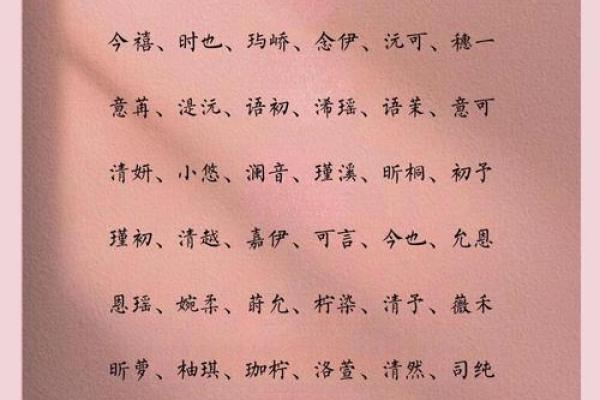 今禧、时也、玙峤、念伊、沅可、穗一
意苒、湜沅、语初、浠瑶、语茉、意可
清妍、小悠、澜音、瑾溪、昕桐、初予
瑾初、清越、嘉伊、可言、今也、允恩
恩瑶、婉柔、莳允、柠染、清予、薇禾
昕萝、柚琪、珈柠、洛萱、清然、司纯